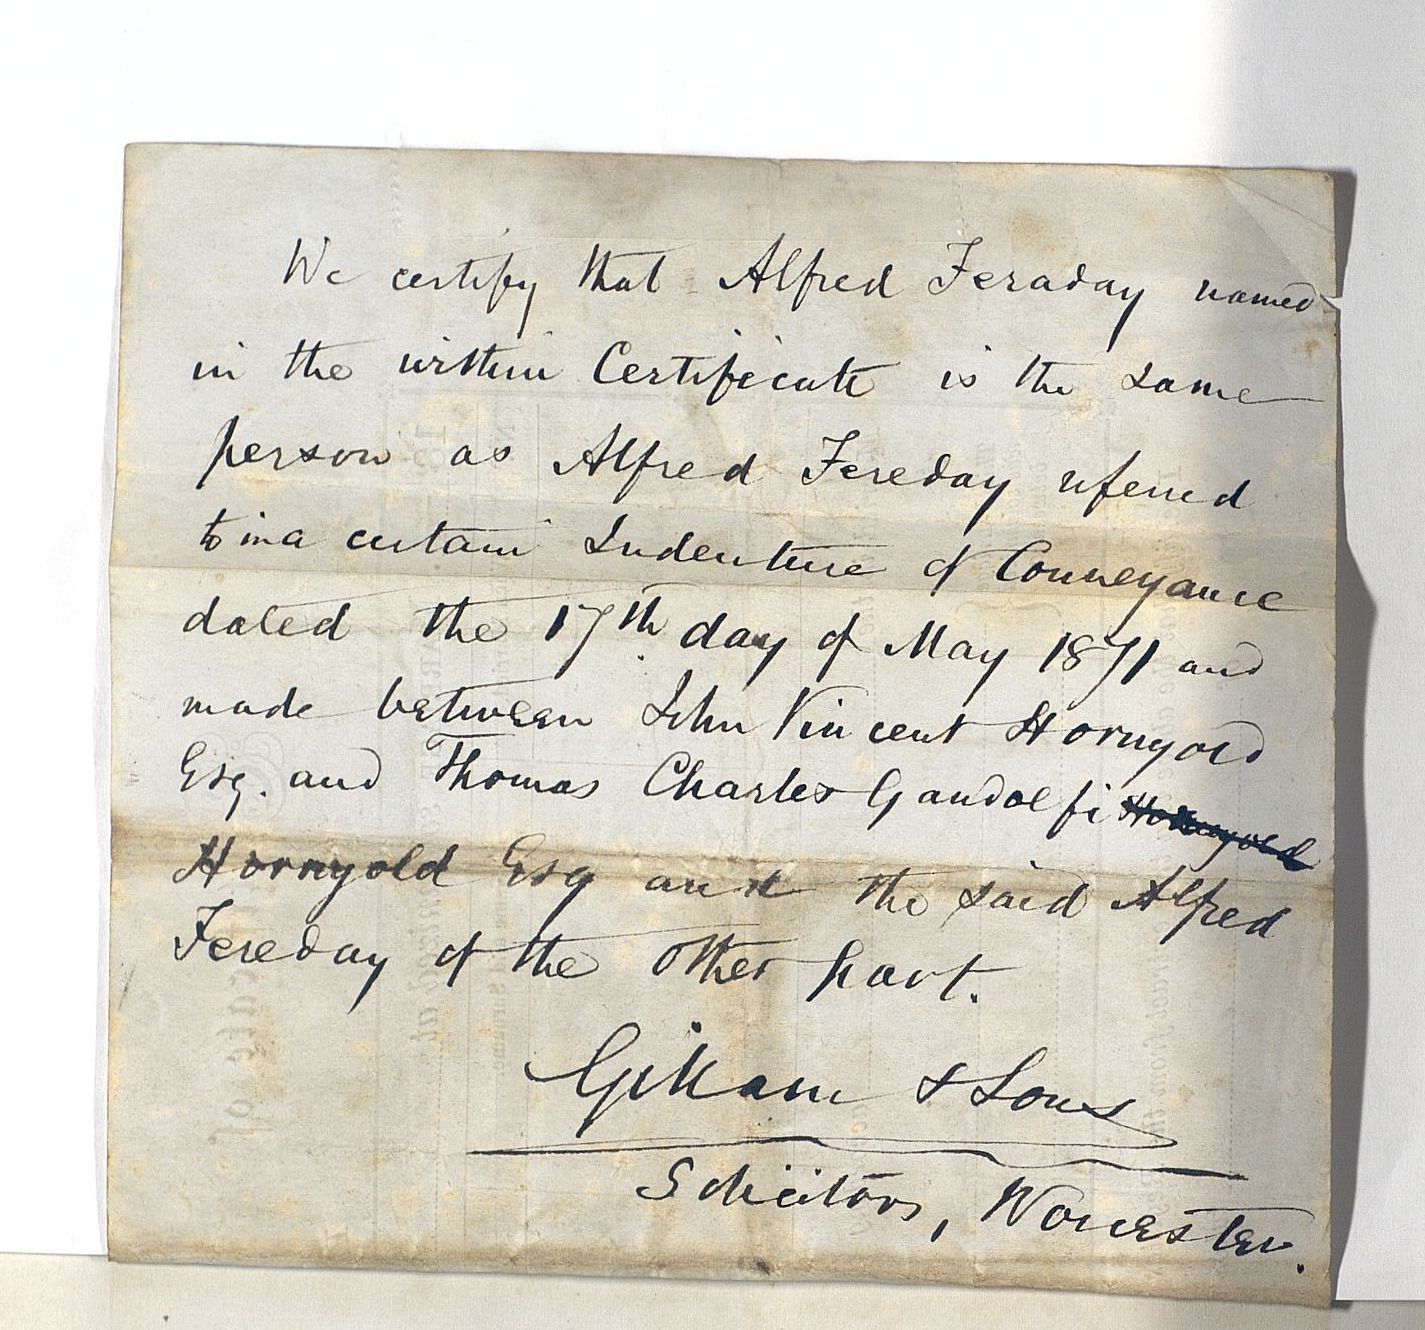 We certify that Alfred Feraday named
in the within Certificate is the same
person as Alfred Fereday referred
to in a certain Indenture of Conveyance
dated the 17th day of May 1871 and
made between John Vincent Hornyold
Esq. and Thomas Charles Gandolfi Hornyold
Hornyold Esq and the said Alfred
Fereday of the other part.
& Sons
Solicitors, Worcester.